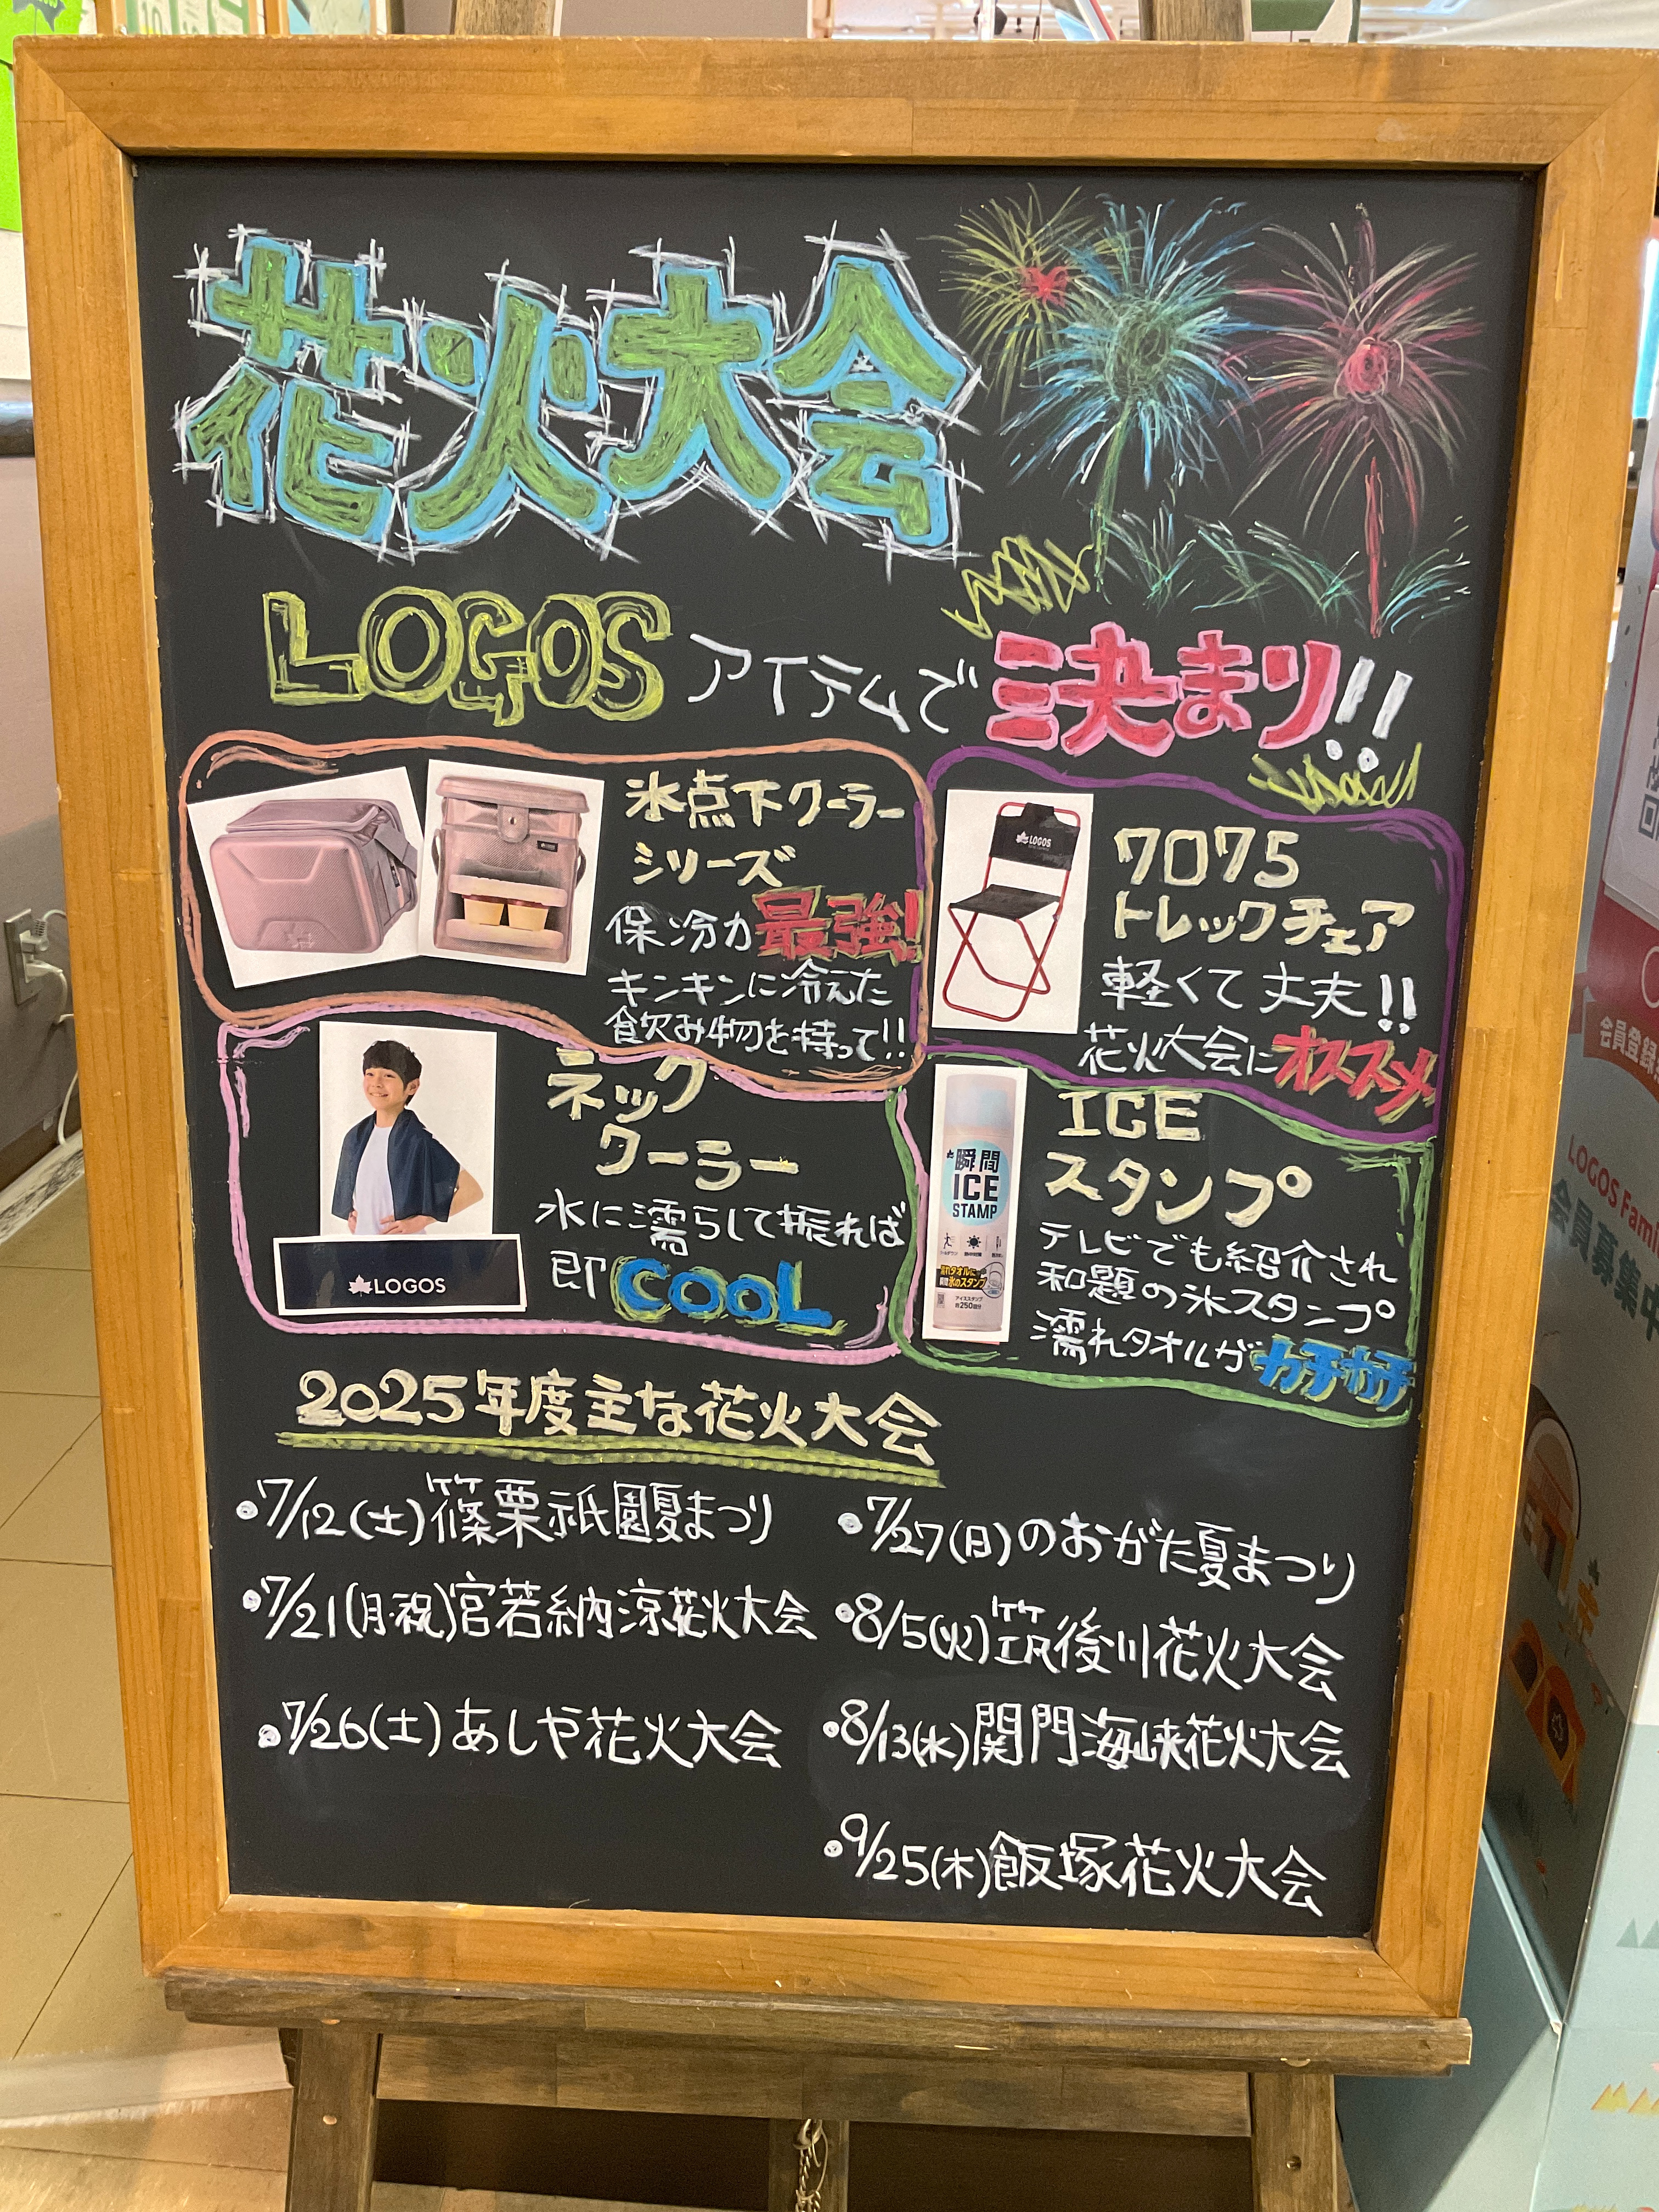 花火大会
LOGOSアイテムで決まり!!
氷点下クーラー
シリーズ
保冷力最強!
キンキンに冷えた
飲み物を持って!!
LOGOS
7075
トレックチェア
軽くて丈夫!!
花火大会にオススメ
ネック
クーラー
水に濡らして振れば
即COOL
LOGOS
瞬間
ICE
STAMP
濡れタオルに
瞬間氷のスタンプ
アイススタンプ
約250回分
ICE
スタンプ
テレビでも紹介され
和題の氷スタンプ
濡れタオルがカチカチ
2025年度主な花火大会
•7/12(土)篠栗祇園夏まつり
•7/21(月・祝)宮若納涼花火大会
•7/26(土)あしや花火大会
•7/27(日)のおがた夏まつり
•8/5(火)筑後川花火大会
•8/13(水)関門海峡花火大会
•9/25(木)飯塚花火大会
会員登録
LOGOS Fami
会員募集中